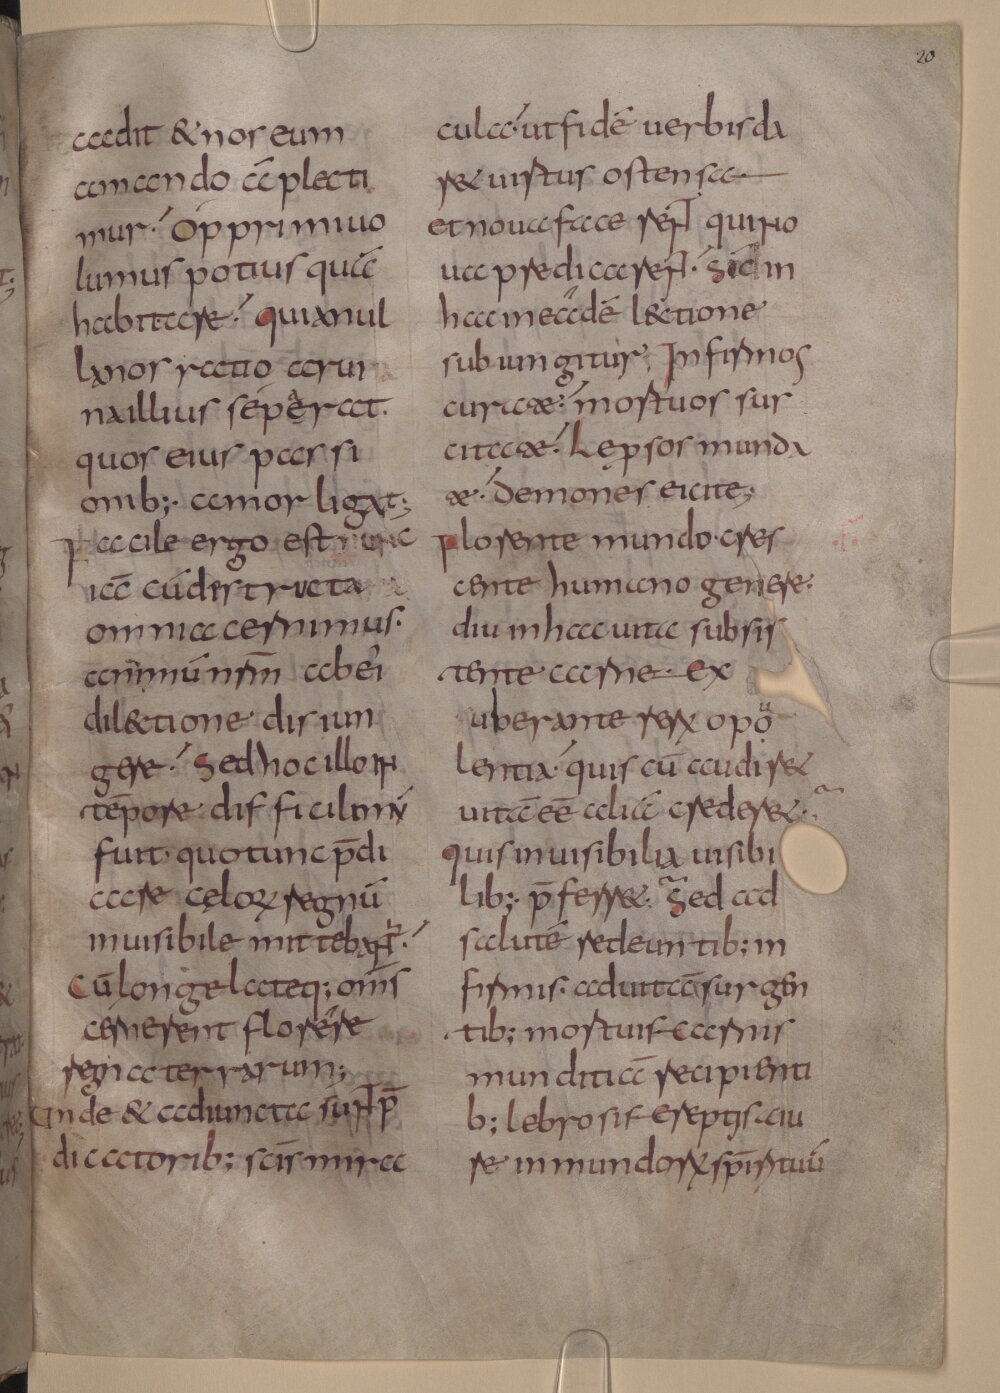 20
cadit & nos eum
amando cō plecti
mur. Opprimi uo
lumus potius quā
habitare. quia nul
la nos ratio a rui
na illius seperat.
quos eius pas si
onib; amor ligat;
Facile ergo est nunc
iā cū distructa
omnia cernimus.
animū nrm̄ ab ei
dilectione disiun
gere. Sed hoc illo in
tēpore dif ficilimū
fuit. quo tunc p̄di
care celoꝝ regnū
inuisibile mittebat̄.
Cū longe lateq; omīs
cernerent florere
regna terrarum;
unde & adiuncta sunt p̄
dicatorib; scīs mira
cula. ut fidē uerbis da
r& uirtus ostensa
et noua facerent qui no
ua predicarent. Sic̄ in
hac in eadē l&tione
subiungitur. Infirmos
curate. mortuos sus
citate. Leprosos munda
te. demones eicite;
Florente mundo. cres
cente humano genere.
diu in hac uita subsis
tente carne. ex
uberante reꝝ opo
lentia. quis cū audir&
uitā eē aliā creder&.
quis inuisibilia uisibi
lib; p̄ferr&. Sed ad
salutē redeuntib; in
firmis. ad uitā surgen
tib; mortuis carnis
munditiā recipienti
b; lebrosis ereptis a iu
re inmundoꝝ spirituū